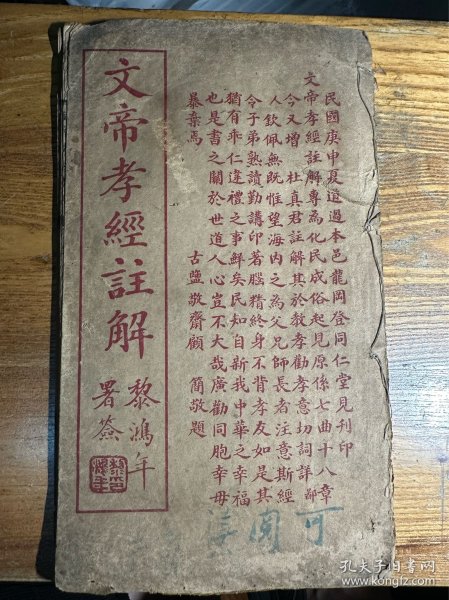 民國庚申夏道過本邑龍岡登同仁堂見刊印
文帝孝經註解專為化民成俗起見原係七曲十八章
今又增 杜真君註解其於教孝勸孝意切詞詳鄙
人欽佩無既惟望海內之為父兄師長者注意斯經
令子弟熟讀勤講印著腦終身不背孝友如是其
猶有乖仁違禮之事鮮矣民知自新我中華之幸福
也是書之關於世道人心豈不大哉廣勸同胞幸毋
暴棄焉 古鹽敬齋顧 簡敬題
文帝孝經註解
黎鴻年
署簽
可
孔夫子旧书网
www.kongfz.com